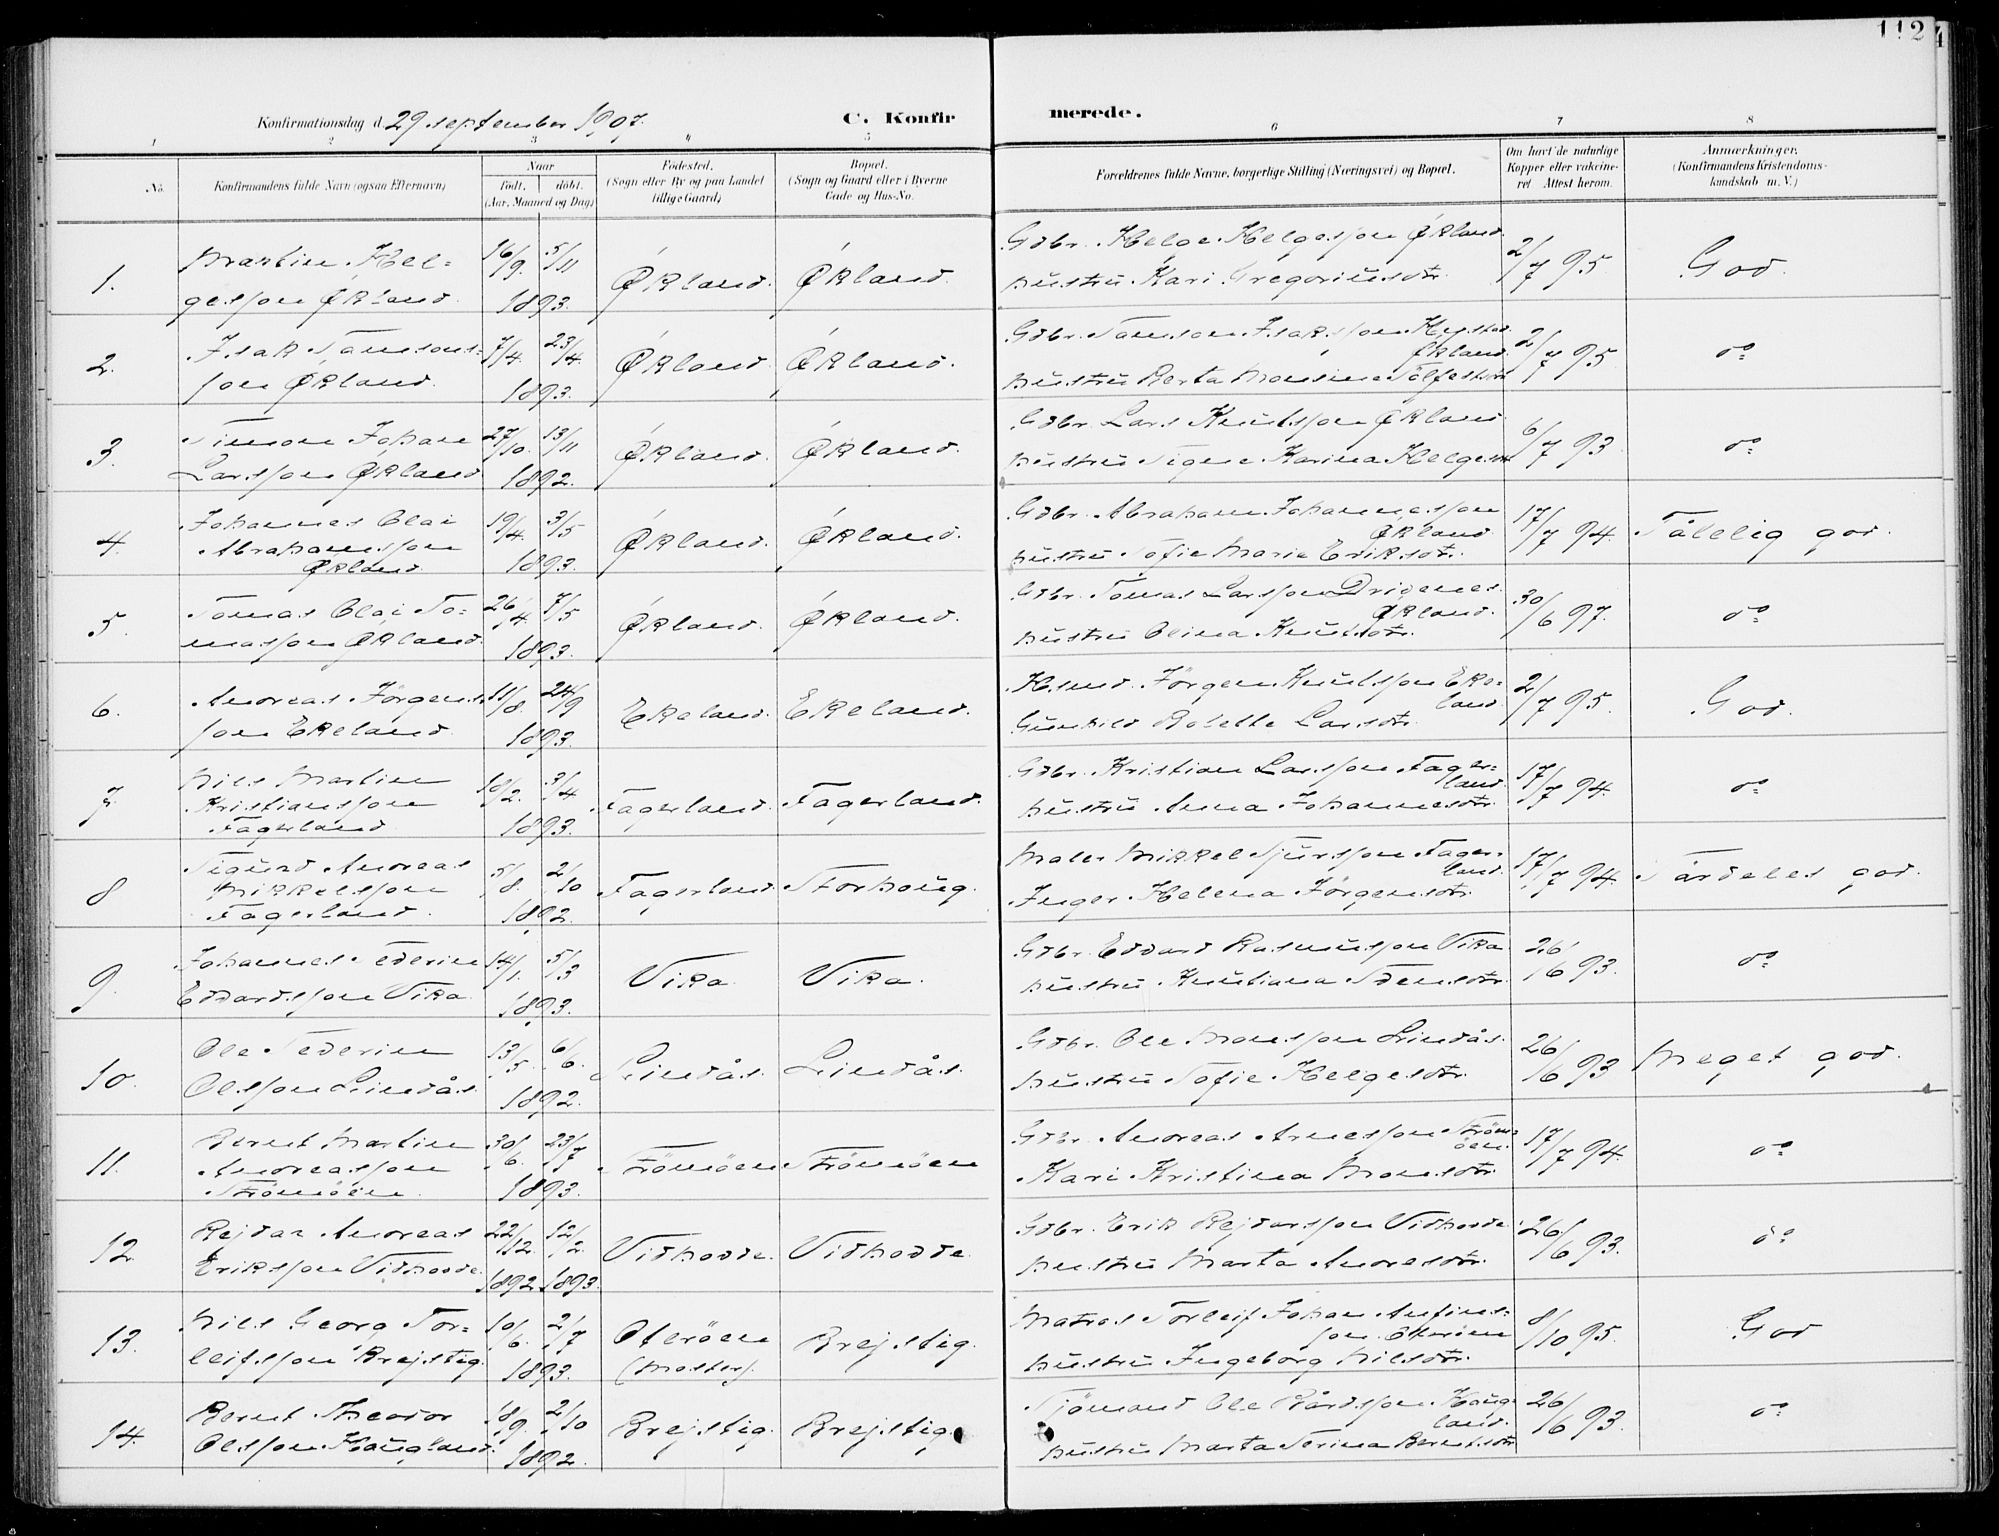 112
Konfirmationsdag d. 29 september 1907.
C. Konfirmerede.
1 2 3 4 5 6 7 8
No.
Konfirmandens fulde Navn (ogsaa Efternavn)
Naar
født. døbt.
(Aar, Maaned og Dag)
Fødested.
(Sogn eller By og paa Landet
tillige Gaard)
Bopæl.
(Sogn og Gaard eller i Byerne
Gade og Hus-No.
Forældrenes fulde Navne, borgerlige Stilling (Næringsvei) og Bopæl.
Om havt de naturlige
Kopper eller vaccine-
ret Attest herom.
Anmærkninger.
(Konfirmandens Kristendoms-
kundskab m. V.)
1.
Martin Hel-
gesson Økland.
16/9. 5/11
1893.
Økland.
Økland.
Gdbr. Helge Helgesson Økland.
hustru Kari Gregoriusdtr.
2/7 95.
God.
2.
Isak Samsons-
son Økland.
7/4. 23/4
1893.
Økland.
Økland.
Gdbr. Samson Isaksson
Økland.
hustru Berta Monsine
2/7 95
do
3.
Simon Johan
Larsson Økland
27/10. 13/11
1892.
Økland.
Økland.
Gdbr. Lars Knutsson Økland
hustru Signe Karina Helgesdtr
6/7 93
do
4.
Johannes Olai
Abrahamsson
Økland.
19/4. 3/5
1893.
Økland.
Økland.
Gdbr. Abraham Johannesson
Økland.
hustru Sofie Marie Eriksdtr.
17/7 94.
Tålelig god.
5.
Tomas Olai To-
masson Økland.
26/4. 7/5
1893.
Økland.
Økland.
Gdbr. Tomas Larsson
Økland.
hustru Olina Knutsdtr.
30/6 97.
do
6.
Andreas Jörgens-
son Ekeland.
11/8. 24/9
1893.
Ekeland.
Ekeland.
Husmd. Jörgen Knutsson Eke-
land.
Gunhild Bolette Larsdtr.
2/7 95.
God.
7.
Nils Martin
Kristiansson
Fagerland
10/2. 3/4
1893.
Fagerland.
Fagerland.
Gdbr. Kristian Larsson Fager-
land.
hustru Anna Johannesdtr.
17/7 94.
do
8
Sigurd Andreas
Mikkelsson
Fagerland.
5/8. 2/10
1892.
Fagerland.
Storhoug.
Maler Mikkel Sjursson Fager-
land.
Inger Helena Jörgensdtr.
17/7 94.
Särdeles god.
9.
Johannes Severin
Edvardsson Vika.
14/1. 5/3
1893.
Vika.
Vika.
Gdbr. Edvard Rasmusson Vika.
hustru Kristiana
26/6 93.
do
10.
Ole Severin
Olsson Lindås.
13/5. 6/6.
1892.
Lindås.
Lindås.
Gdbr. Ole Monsson Lindås.
hustru Sofie Helgesdtr.
26/6 93
Meget god.
11.
Bernt Martin
Andreasson
Strömöen.
30/6. 23/7
1893.
Strömöen
Strömöen
Gdbr. Andreas Arnesson Ström-
öen.
Kari Kristina Monsdtr.
17/7 94.
do
12.
Rejdar Andreas
Eriksson Vidhovde.
22/12. 12/2.
1892. 1893.
Vidhovde.
Vidhovde.
Gdbr. Erik Rejdarsson Vidhovde.
hustru Marta Andersdtr.
26/6 93.
do
13.
Nils Georg Tor-
leifsson Brejstig.
10/6. 2/7
1893.
Oteröen
(Moster).
Brejstig.
Matros Torleif Johan Anfins-
son Oteröen
hustru Ingeborg Nilsdtr.
8/10 95.
God
14.
Bernt Theodor
Olsson Haugland.
18/9. 2/10
1892.
Brejstig.
Brejstig.
Sjömand Ole Bårdsson Haug-
land.
hustru Marta Serina Berntsdtr
26/6 93.
do